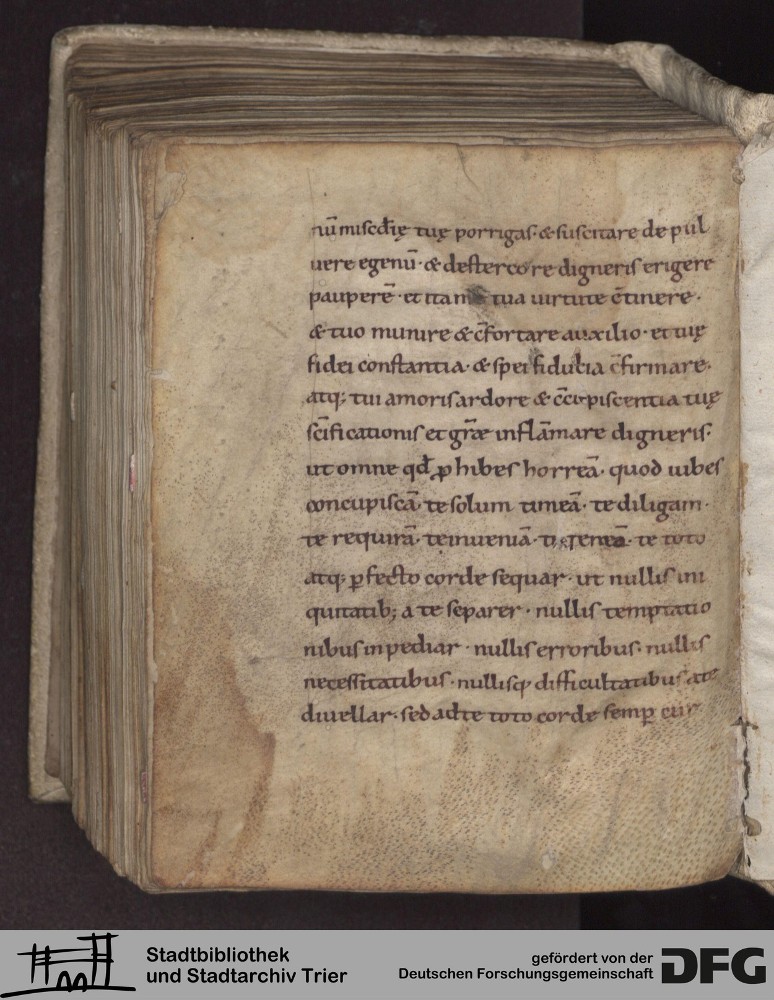 nū miscd̄ię tuę porrigas· & suscitare de pul
uere egenū· & de stercore digneris erigere
pauperē· et ita me tua uirtute c̄tinere·
& tuo munire & c̄fortare auxilio· et tuę
fidei constantia· & spei fiducia c̄firmare·
atq; tui amoris ardore & c̄cupiscentia tuę
sc̄ificationis et græ inflāmare digneris·
ut omne qđ ꝓhibes horreā· quod iubes
concupiscā· te solum timeā· te diligam·
te requirā· te inueniā· te teneā· te toto
atq; ꝑfecto corde sequar· ut nullis ini
quitatib; a te separer· nullis temptatio
nibus inpediar· nullis erroribus· nullis
necessitatibus· nullisq; difficultatibus a te
diuellar· sed ad te toto corde semꝑ
Stadtbibliothek
und Stadtarchiv Trier
gefördert von der
Deutschen Forschungsgemeinschaft
DFG